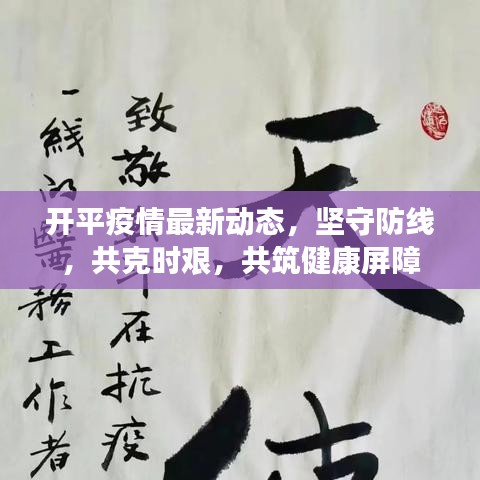 开平疫情最新动态，坚守防线
，共克时艰，共筑健康屏障
天
致敬斗在抗疫
一線的醫務工作者